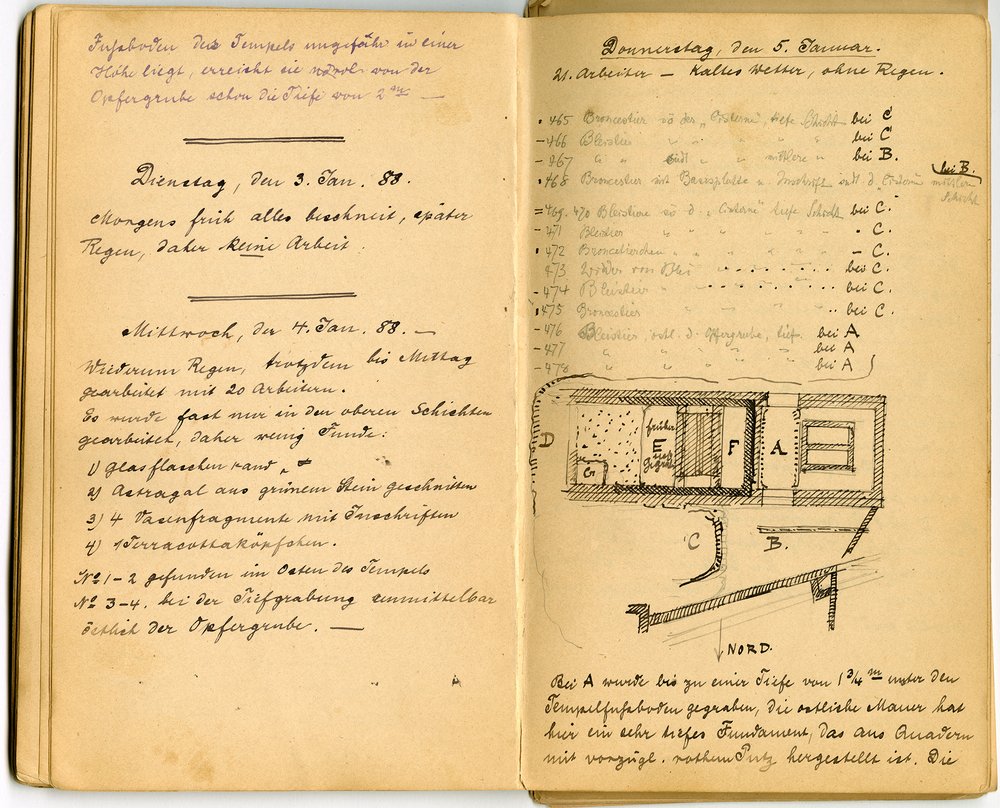 Fussboden des Tempels ungefähr in einer
Höhe liegt, erreicht sie von der
Opfergrube schon die Tiefe von 2 m —
Dienstag, den 3. Jan. 88.
Morgens früh alles beschneit, später
Regen, daher keine Arbeit.
Mittwoch, der 4. Jan. 88. —
Wiederum Regen, trotzdem bis Mittag
gearbeitet mit 20 Arbeitern.
Es wurde fast nur in den oberen Schichten
gearbeitet, daher wenig Funde:
1) Glasflaschenrand
2) Astragal aus grünem Stein geschnitten
3) 4 Vasenfragmente mit Inschriften
4) 1 Terracottaköpfchen.
No 1-2 gefunden im Osten des Tempels
No 3-4. bei der Tiefgrabung unmittelbar
östlich der Opfergrube. —
Donnerstag, den 5. Januar.
21. Arbeiter — Kaltes Wetter, ohne Regen.
• 465 Broncestier sö der „Cisterne", tiefe Schicht bei C
- 466 Bleistier " " " " bei C
- 467 " " südl " " mittlere " bei B.
• 468 Broncestier mit Basisplatte u. Inschrift südl d. „Cisterne" mittlere Schicht bei B.
= 469. 470 Bleistiere sö d. „Cisterne" tiefe Schicht bei C.
- 471 Bleistier " " " " " • C.
• 472 Broncetierchen " " " " " – C.
473 Widder von Blei bei C.
- 474 Bleistier bei C.
• 475 Broncestier " bei C.
- 476 Bleistier, östl. d. Opfergrube, tief. bei A
- 477 " " " " bei A
- 478 " " " " bei A
D
G
früher
E
F
A
C
B.
NORD.
Bei A wurde bis zu einer Tiefe von 1 3/4 m unter den
Tempelfussboden gegraben, die östliche Mauer hat
hier ein sehr tiefes Fundament, das aus Quadern
mit vorzügl. rothem Putz hergestellt ist. Die